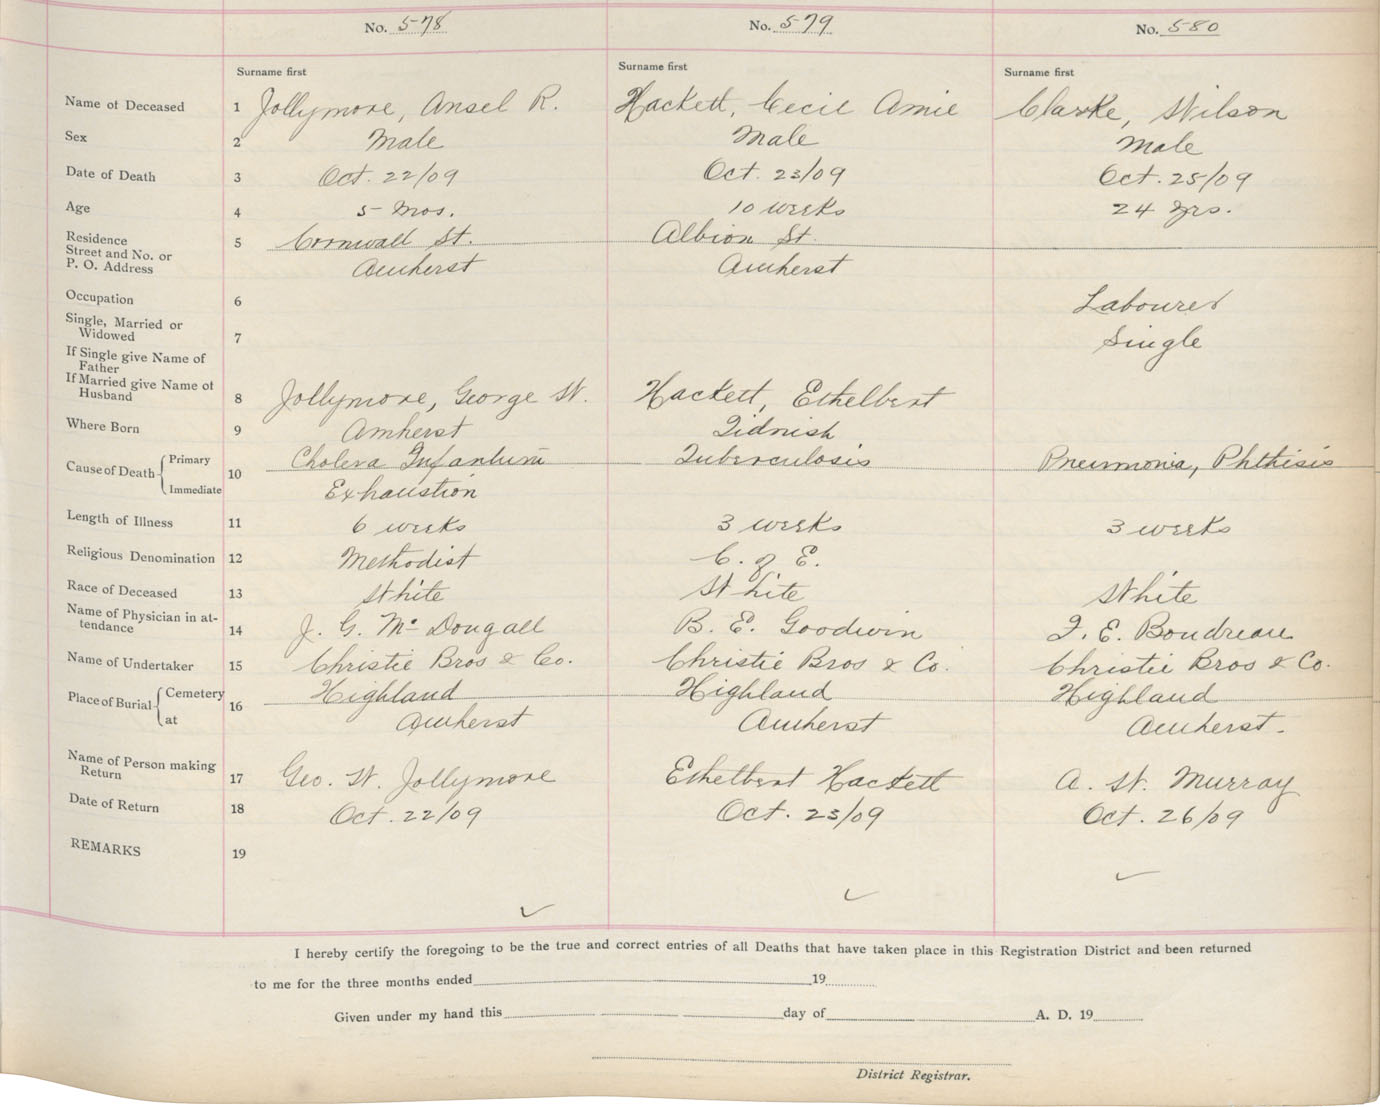 No. 578 No. 579 No. 580
Surname first Surname first Surname first
Name of Deceased 1 Jollymore, Ansel R. Hackett, Cecil Amie Clarke, Wilson
Sex 2 Male Male Male
Date of Death 3 Oct. 22/09 Oct. 23/09 Oct. 25/09
Age 4 5 Mos. 10 weeks 24 yrs.
Residence 5 Cornwall St. Albion St.
Street and No. or
P. O. Address Amherst Amherst
Occupation 6 Labourer
Single, Married or
Widowed 7 Single
If Single give Name of
Father
If Married give Name of
Husband 8 Jollymore, George W. Hackett, Ethelbert
Where Born 9 Amherst Tidnish
Cause of Death 10 Primary Cholera Infantum Tuberculosis Pneumonia, Phthisis
Immediate Exhaustion
Length of Illness 11 6 weeks 3 weeks 3 weeks
Religious Denomination 12 Methodist C. of E.
Race of Deceased 13 White White White
Name of Physician in at-
tendance 14 J. G. Mc Dougall B. E. Goodwin F. E. Boudreau
Name of Undertaker 15 Christie Bros & Co. Christie Bros & Co. Christie Bros & Co.
Place of Burial 16 Cemetery Highland Highland Highland
at Amherst Amherst Amherst.
Name of Person making
Return 17 Geo. W. Jollymore Ethelbert Hackett A. W. Murray
Date of Return 18 Oct. 22/09 Oct. 23/09 Oct. 26/09
REMARKS 19
I hereby certify the foregoing to be the true and correct entries of all Deaths that have taken place in this Registration District and been returned
to me for the three months ended 19
Given under my hand this day of A. D. 19
District Registrar.